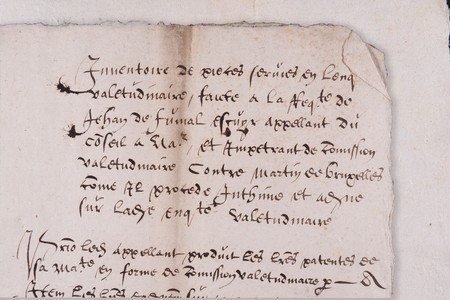 Inventoire de pieces servies en lenq
valetudinaire, faicte a la Req.te de
Jehan de fumal escuyr appellant du
Conseil a Na.r et Impetrant de Comission
valetudinaire Contre Martin de bruxelles
Come Il procede Inthime et adjne
sur ladte enq.te valetudinaire
led. appellant produit les lres patentes de
sa Ma.te en forme de Comission valetudinaire p
Item les